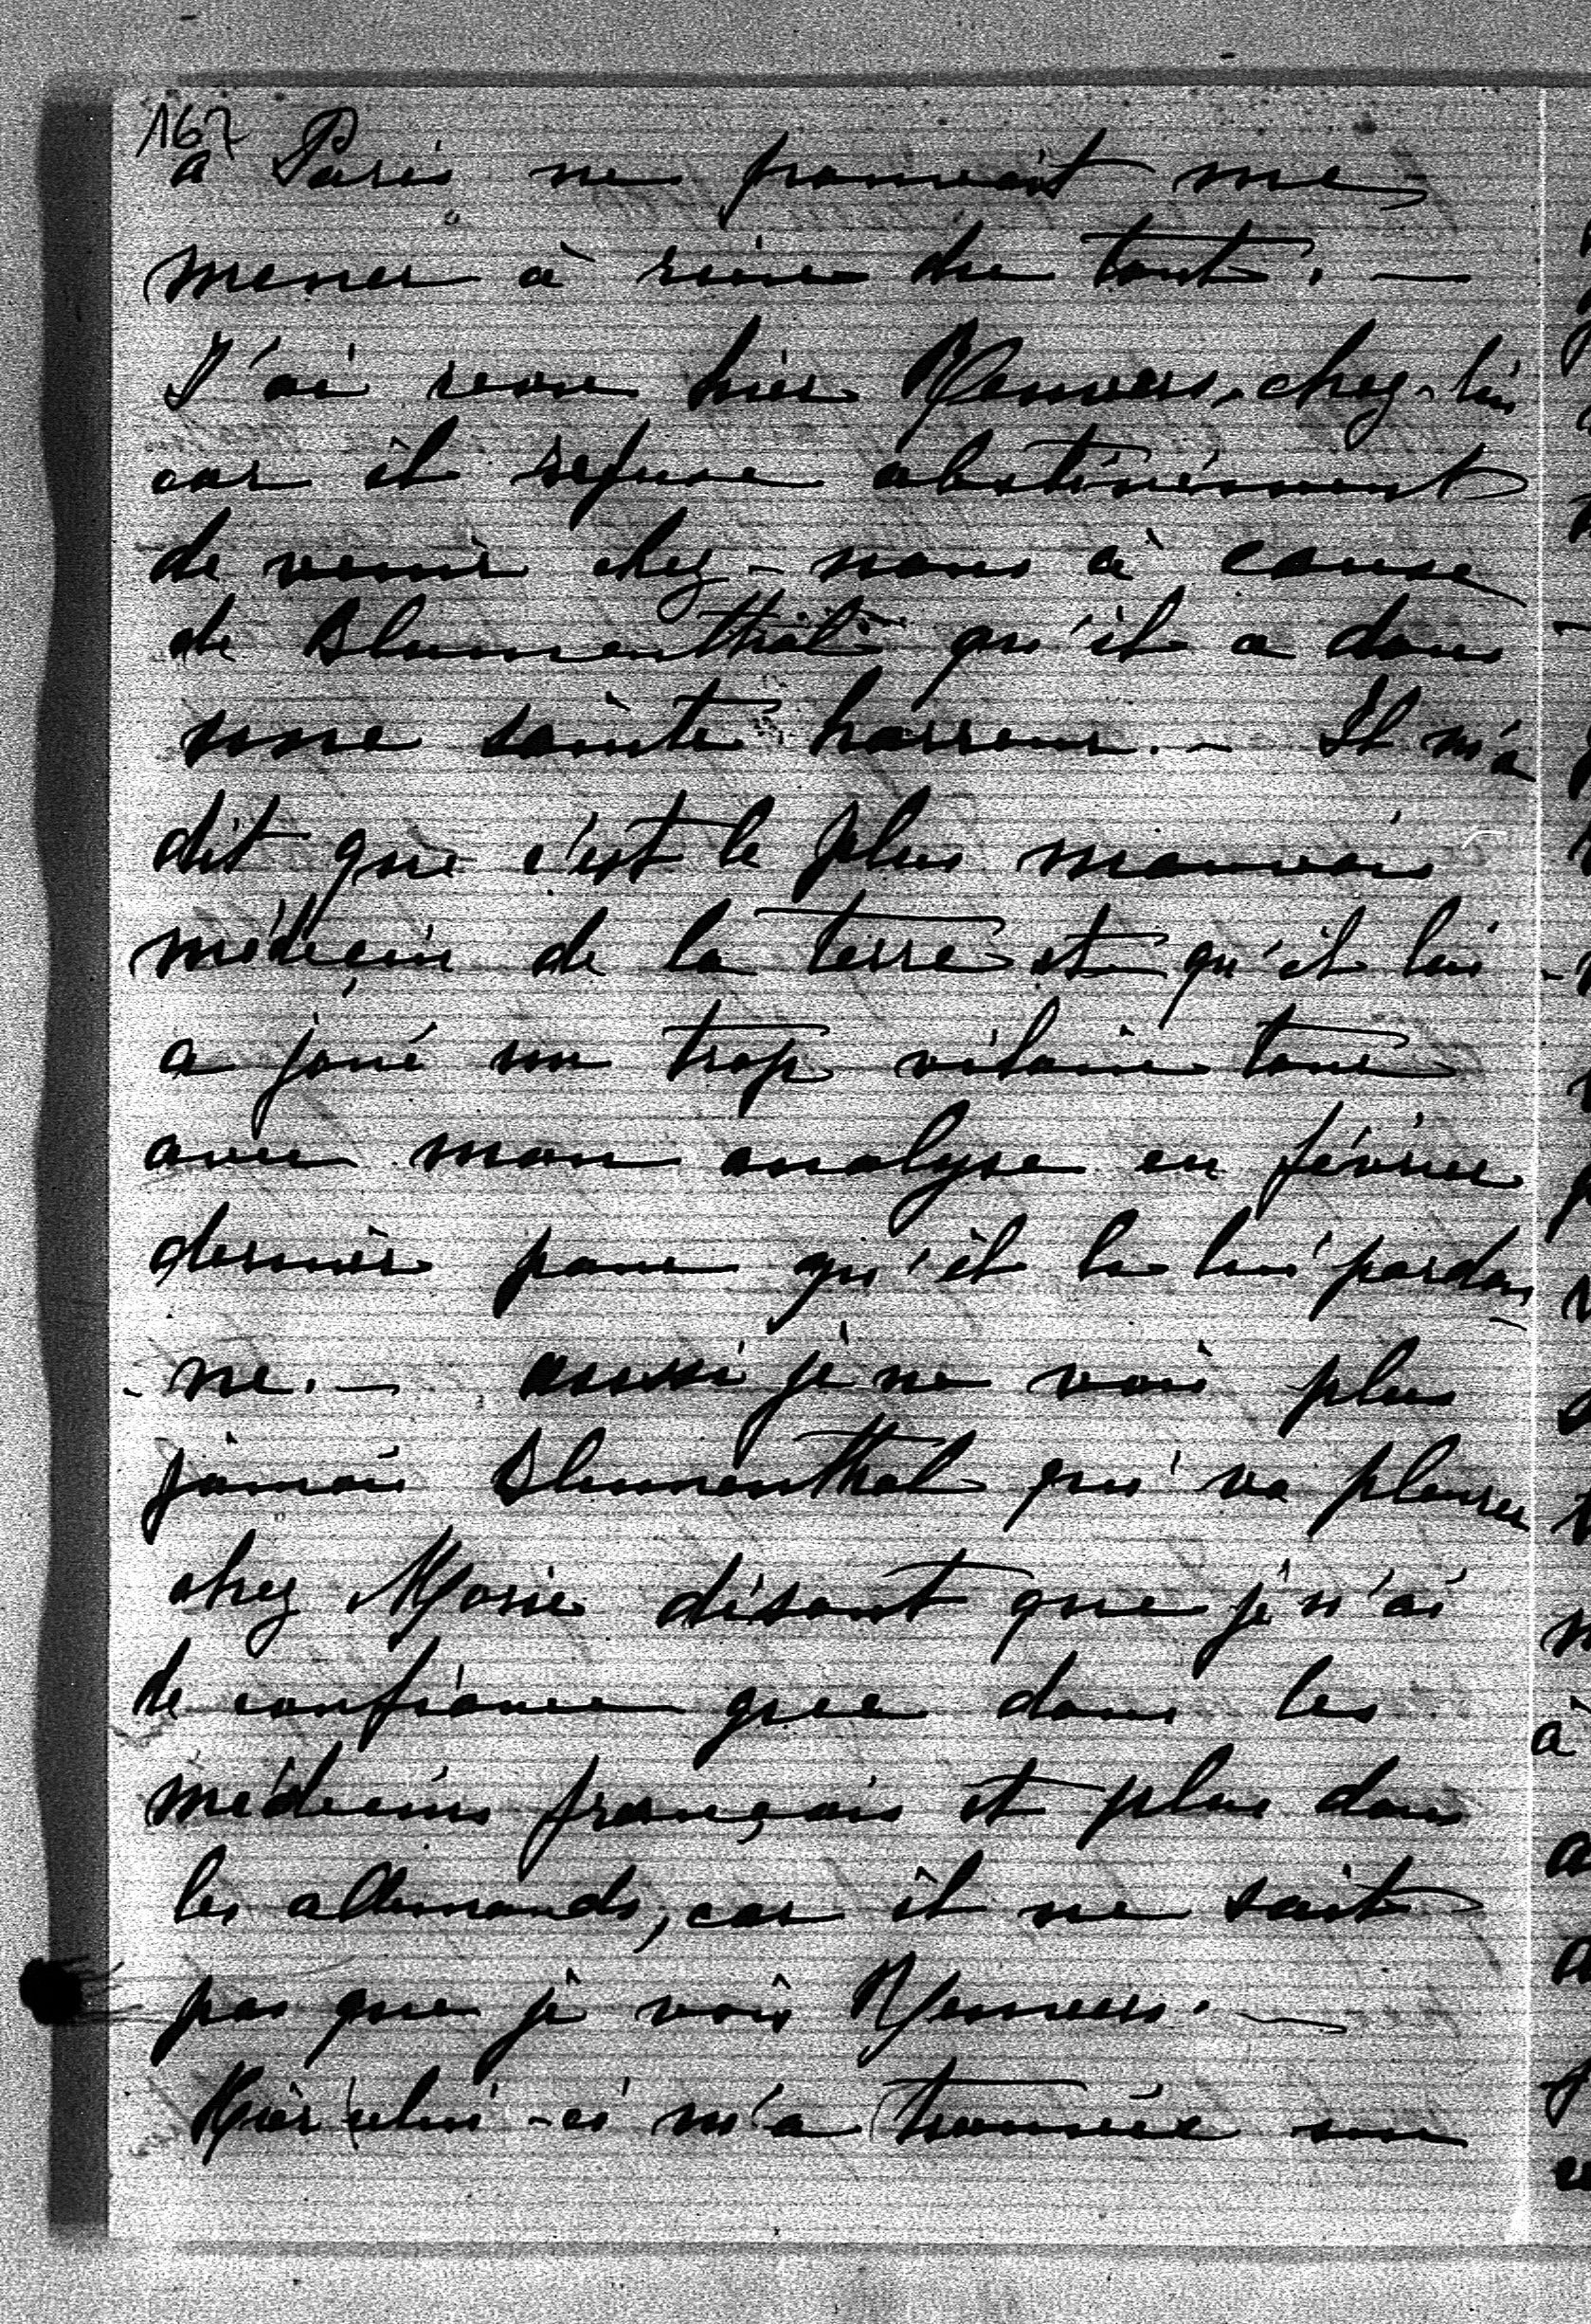 167
à Paris ne pouvait me
mener à rien du tout. —
J'ai revu hier Renvers, chez-lui
car il refuse obstinément
de venir chez-nous à cause
de Blumenthal qu'il a dans
une sainte horreur. — Il m'a
dit que c'est le plus mauvais
médeçin de la terre et qu'il lui
a joué un trop vilain tour
avec mon analyse en février
dernier pour qu'il le lui pardon
-ne. — aussi je ne vois plus
jamais Blumenthal qui va pleurer
chez Marie disant que je n'ai
de confiance que dans les
médecins français et plus dans
les allemands, car il ne sait
pas que je vois Renvers. —
Hier celui-ci m'a trouvée une